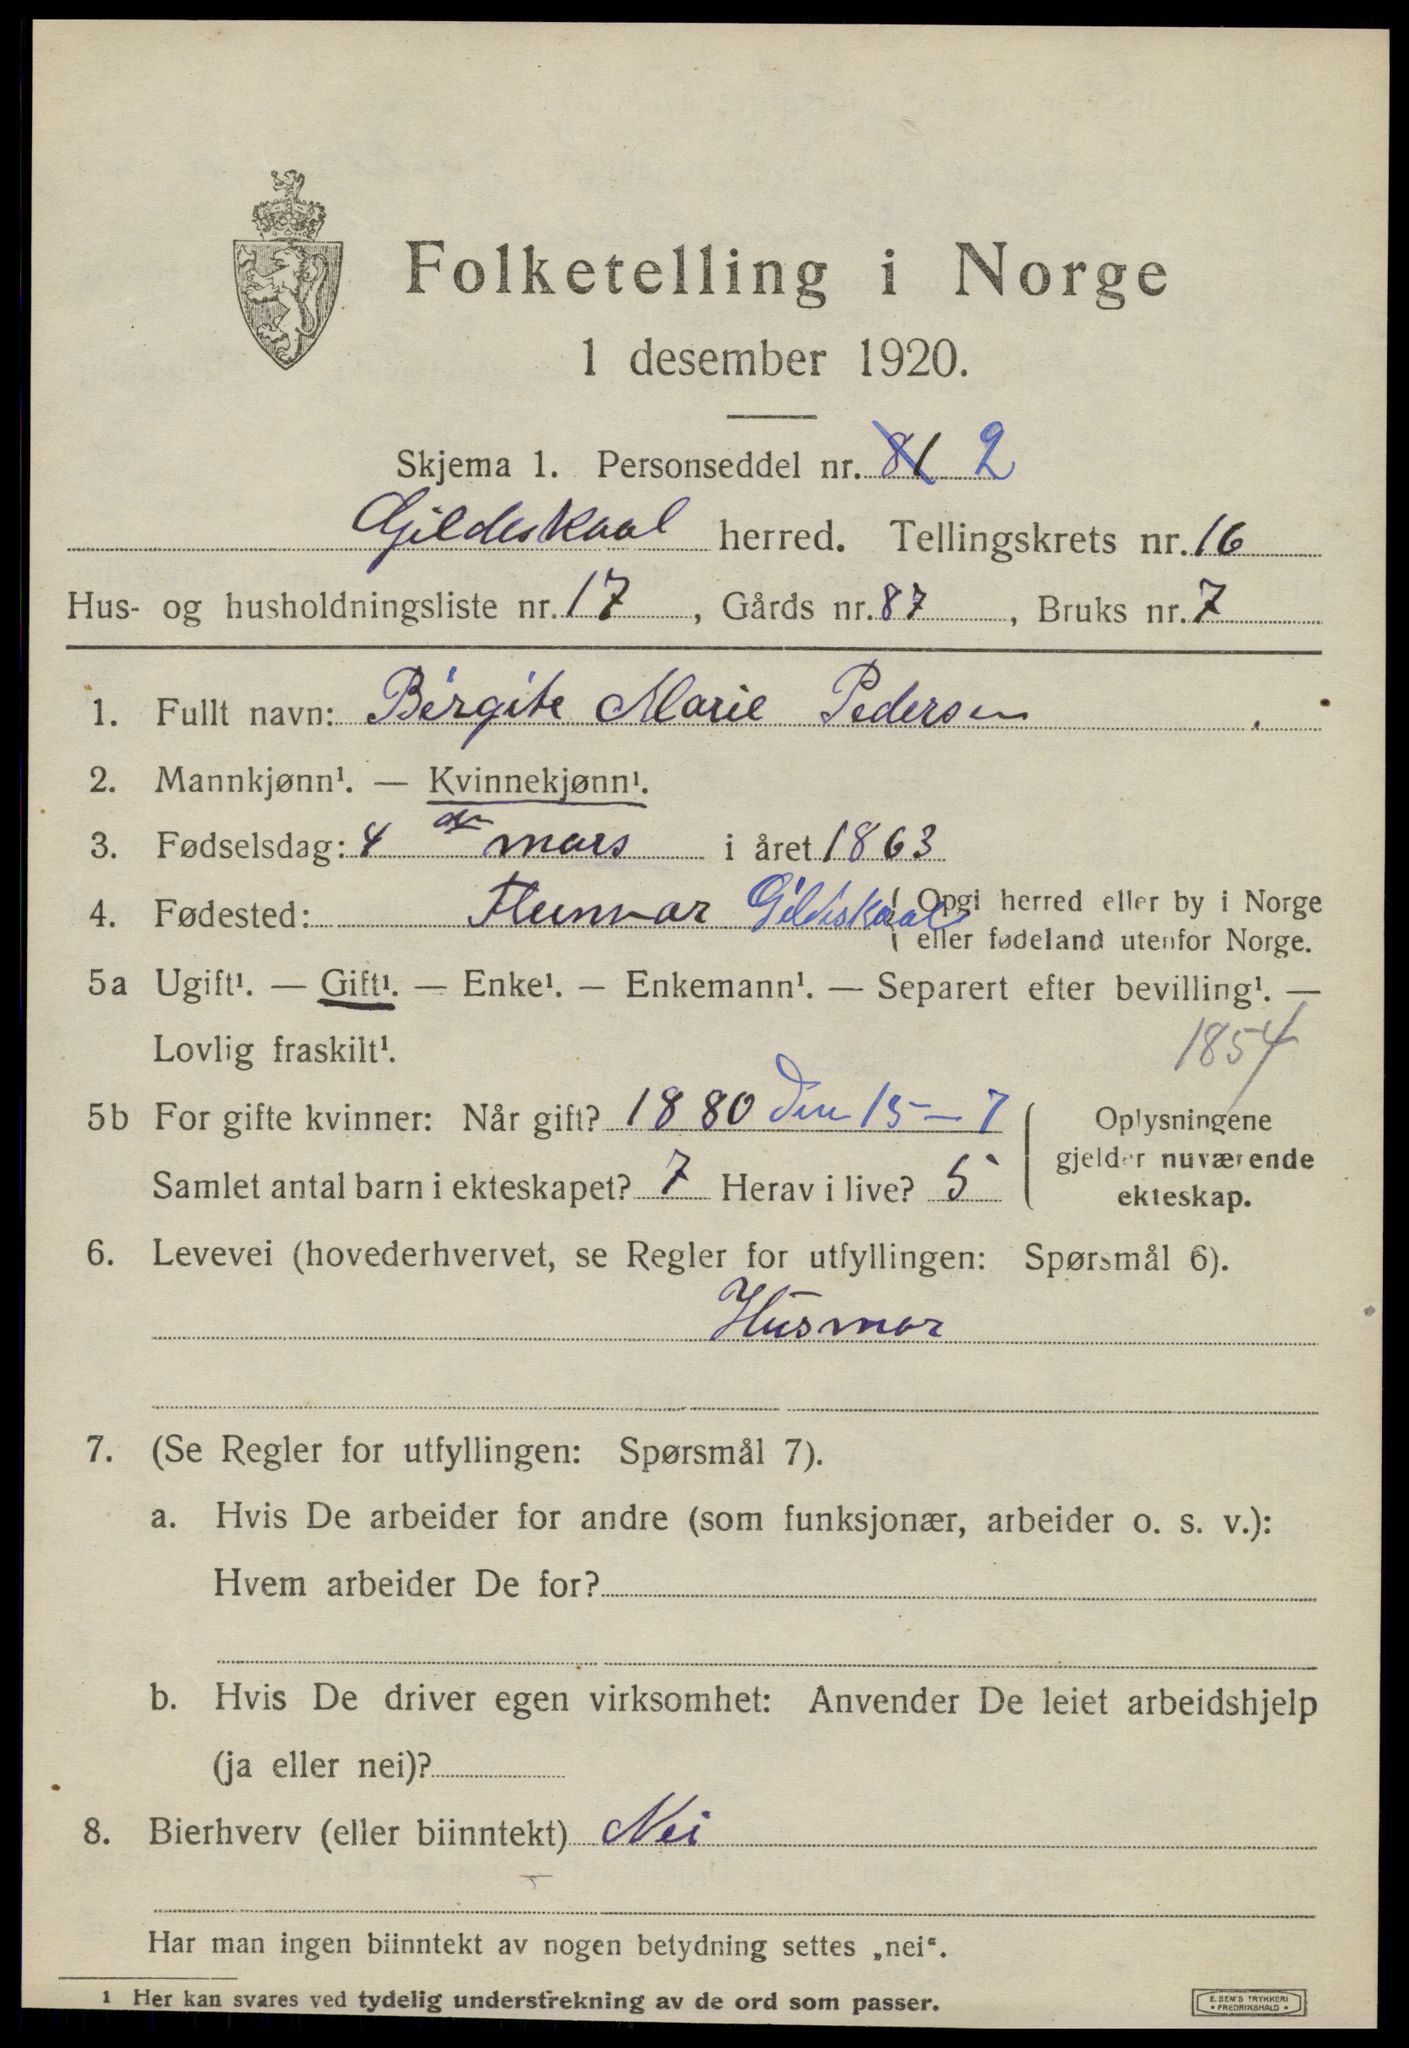 Folketelling i Norge
1 desember 1920.
Skjema 1. Personseddel nr. 81 2
Gildeskaal herred. Tellingskrets nr. 16
Hus- og husholdningsliste nr. 17, Gårds nr. 87, Bruks nr. 7
1. Fullt navn: Birgite Marie Pedersen
2. Mannkjønn¹. — Kvinnekjønn¹.
3. Fødselsdag: 4 de mars i året 1863
4. Fødested: Gildeskaal Opgi herred eller by i Norge
eller fødeland utenfor Norge.
5a Ugift¹. — Gift¹. — Enke¹. — Enkemann¹. — Separert efter bevilling¹. —
Lovlig fraskilt¹.
1854
5b For gifte kvinner: Når gift? 1880 den 15-7
Samlet antal barn i ekteskapet? 7 Herav i live? 5
Oplysningene
gjelder nuværende
ekteskap.
6. Levevei (hovederhvervet, se Regler for utfyllingen: Spørsmål 6).
Husmor
7. (Se Regler for utfyllingen: Spørsmål 7).
a. Hvis De arbeider for andre (som funksjonær, arbeider o. s. v.):
Hvem arbeider De for?
b. Hvis De driver egen virksomhet: Anvender De leiet arbeidshjelp
(ja eller nei)?
8. Bierhverv (eller biinntekt) Nei
Har man ingen biinntekt av nogen betydning settes „nei“.
1 Her kan svares ved tydelig understrekning av de ord som passer.
E. SEM'S TRYKKERI
• FREDRIKSHALD •